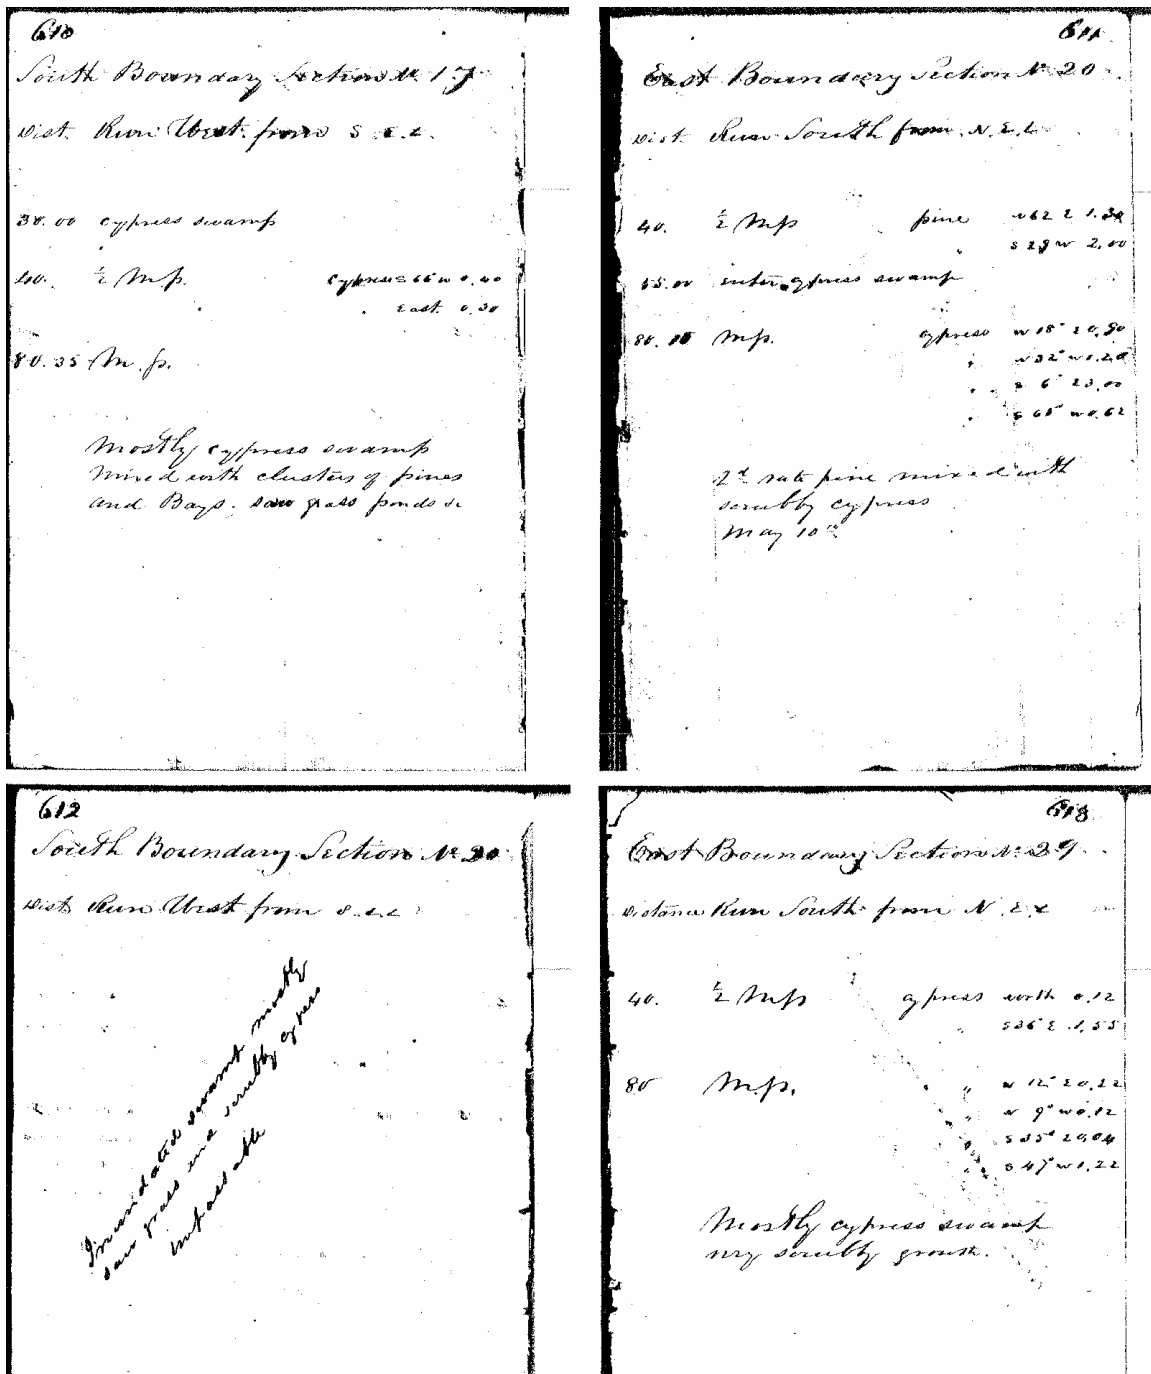 610
South Boundary Section № 17
Dist. Run West from S. E. C.
38.00 cypress swamp
40. ½ M.p. cypress S 66 W 0.40
" East 0.30
80.35 M.p.
Mostly cypress swamp
Mixed with clusters of pines
and Bays. saw grass ponds &c
611
East Boundary Section № 20
Dist. Run South from N. E. C.
40. ½ M.p. pine N 62 E 1.30
" S 29 W 2.00
55.00 enter cypress swamp
80.10 M.p. cypress N 18° E 0.90
" N 32° W 0.20
" S 6° E 3.00
" S 60° W 0.62
2d rate pine mixed with
scrubby cypress
May 10th
612
South Boundary Section № 20
Dist. Run West from S. E. C.
Inundated swamp mostly
saw grass and scrubby cypress
impassable
613
East Boundary Section № 29
Distance Run South from N. E. C.
40. ½ M.p. cypress north 0.12
" S 36° E 1.55
80 M.p. " " N 12° E 0.22
" N 9° W 0.12
" S 35° E 0.04
" S 47° W 1.22
Mostly cypress swamp
very scrubby growth.